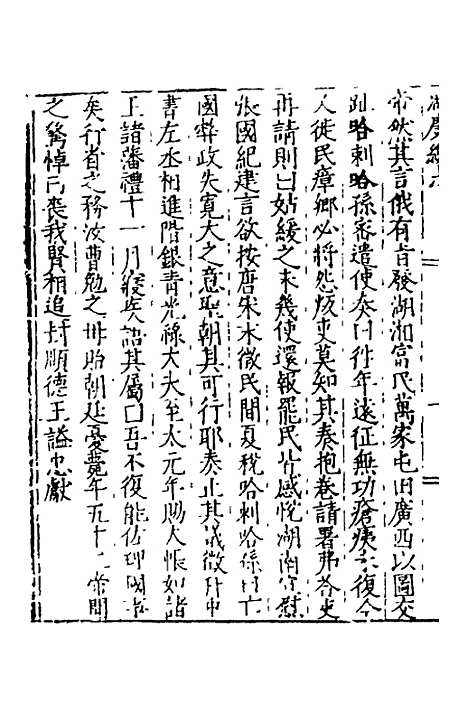 帝然其言俄有旨發湖湘富民萬家屯田廣西以圖交
趾哈剌哈孫密遣使奏曰徃年遠征無功瘡痍未復今
又徙民瘴鄉必將怨叛吏莫知其奏抱卷請署弗答吏
再請則曰姑緩之未幾使還報罷民皆感悅湖南宣慰
張國紀建言欲按唐宋末徵民間夏稅哈剌哈孫曰亡
國弊政失寛大之意聖朝其可行耶奏止其議徵拜中
書左丞相進階銀青光祿大夫至大元年賜大帳如諸
王諸藩禮十一月寢疾語其屬曰吾不復能佐理國事
矣行省之務汝曹勉之毋貽朝廷憂薨年五十二帝聞
之驚悼曰喪我賢相追封順德王謚忠獻